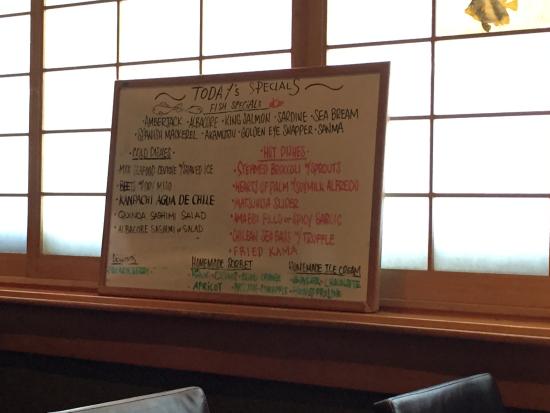 TODAY'S SPECIALS
FISH SPECIALS
AMBERJACK · ALBACORE · KING SALMON · SARDINE · SEA BREAM
SPANISH MACKEREL · AKAMUTSU · GOLDEN EYE SNAPPER · SANMA
COLD DISHES
MIX SEAFOOD CEVICHE W/SHAVED ICE
BEETS W/ MISO
KANPACHI AGUA DE CHILE
QUINOA SASHIMI SALAD
ALBACORE SASHIMI SALAD
HOT DISHES
STEAMED BROCCOLI W/SPROUTS
HEARTS OF PALM W/SOYMILK ALFREDO
MATSUHISA SLIDER
AMAEBI SPICY GARLIC
CHILEAN SEA BASS W/ TRUFFLE
FRIED KAMA
HOMEMADE SORBET
ORANGE
APRICOT PINEAPPLE
HOMEMADE ICE CREAM
CHOCOLATE